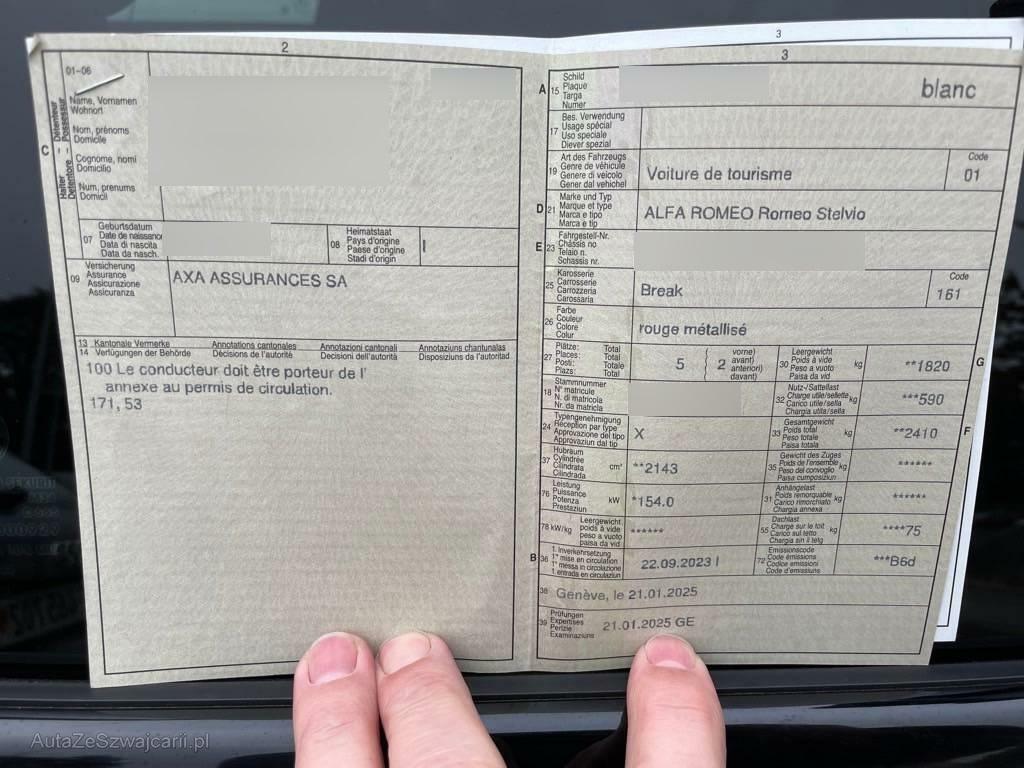 2
01-06
Name, Vornamen
Wohnort
Nom, prénoms
Domicile
Cognome, nomi
Domicilio
Num, prenums
Domicil
C
Halter – Détenteur
Detentore – Possessur
07
Geburtsdatum
Date de naissance
Data di nascita
Data da nasch.
08
Heimatstaat
Pays d'origine
Paese d'origine
Stadi d'origin
09
Versicherung
Assurance
Assicurazione
Assicuranza
AXA ASSURANCES SA
13 Kantonale Vermerke Annotations cantonales Annotazioni cantonali Annotaziuns chantunalas
14 Verfügungen der Behörde Décisions de l'autorité Decisioni dell'autorità Disposiziuns da l'autoritad
100 Le conducteur doit être porteur de l'
annexe au permis de circulation.
171, 53
3
3
A 15
Schild
Plaque
Targa
Numer
blanc
17
Bes. Verwendung
Usage spécial
Uso speciale
Diever spezial
19
Art des Fahrzeugs
Genre de véhicule
Genere di veicolo
Gener dal vehichel
Voiture de tourisme
Code
01
D 21
Marke und Typ
Marque et type
Marca e tipo
Marca e tip
ALFA ROMEO Romeo Stelvio
E 23
Fahrgestell-Nr.
Châssis no
Telaio n.
Schassis nr.
25
Karosserie
Carrosserie
Carrozzeria
Carossaria
Break
Code
161
26
Farbe
Couleur
Colore
Colur
rouge métallisé
27
Plätze: Total
Places: Total
Posti: Totale
Plazs: Total
5
2
vorne)
avant)
anteriori)
davant)
30
Leergewicht
Poids à vide
Peso a vuoto
Paisa da vid
kg
**1820
G
18
Stammnummer
N° matricule
N. di matricola
Nr. da matricla
32
Nutz-/Sattellast
Charge utile/sellette
Carico utile/sella
Chargia utila/sella
kg
***590
24
Typengenehmigung
Réception par type
Approvazione del tipo
Approvaziun dal tip
X
33
Gesamtgewicht
Poids total
Peso totale
Paisa totala
kg
**2410
F
37
Hubraum
Cylindrée
Cilindrata
Cilindrada
cm³
**2143
35
Gewicht des Zuges
Poids de l'ensemble
Peso del convoglio
Paisa cumposiziun
kg
******
76
Leistung
Puissance
Potenza
Prestaziun
kW
*154.0
31
Anhängelast
Poids remorquable
Carico rimorchiato
Chargia annexa
kg
******
78 kW/kg
Leergewicht
poids à vide
peso a vuoto
paisa da vid
******
55
Dachlast
Charge sur le toit
Carico sul tetto
Chargia sin il tetg
kg
****75
B 36
1. Inverkehrsetzung
1re mise en circulation
1a messa in circolazione
1. entrada en circulaziun
22.09.2023 I
72
Emissionscode
Code émissions
Codice emissioni
Code d'emissiuns
***B6d
38
Genève, le 21.01.2025
39
Prüfungen
Expertises
Perizie
Examinaziuns
21.01.2025 GE
AutaZeSzwajcarii.pl